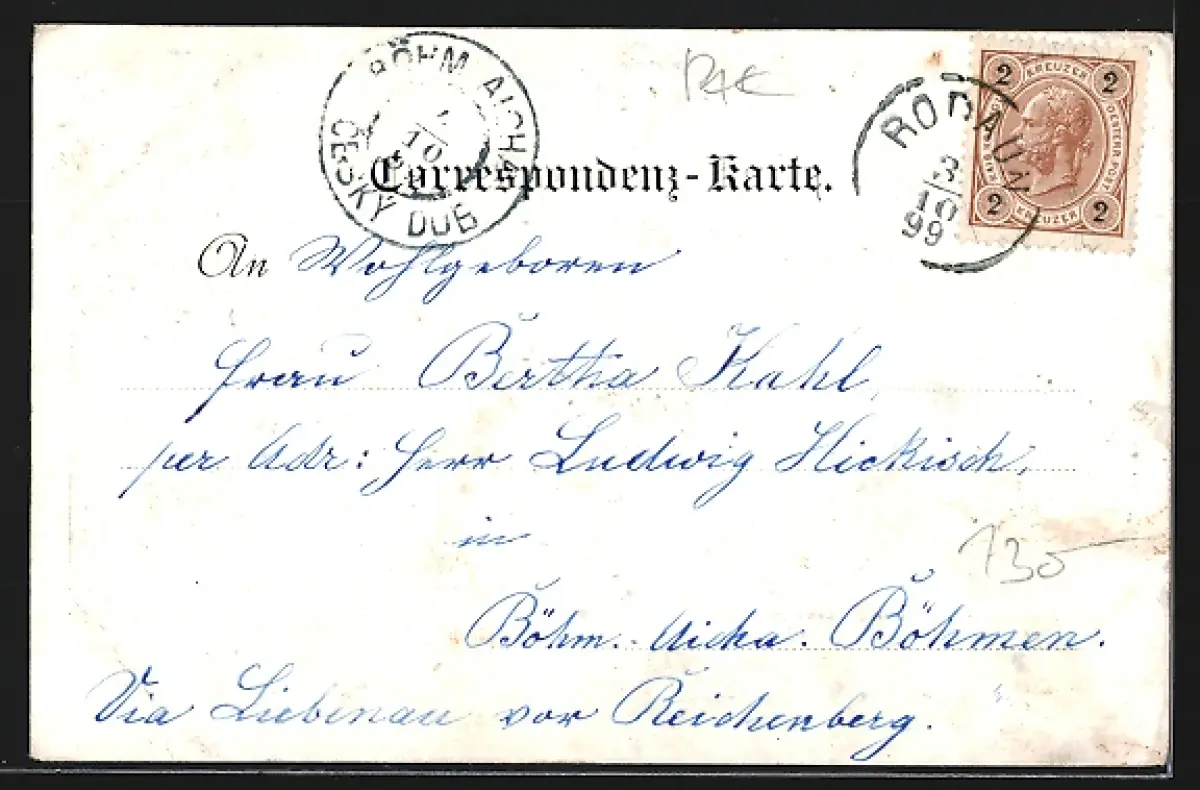 BÖHM. AICHA
10
ČESKÝ DUB
RODAUN
3
10
99
2 KREUZER 2
OESTERR. POST
2 KREUZER 2
Correspondenz-Karte.
An Wohlgeboren
Frau Bertha Kahl,
per Adr: Herr Ludwig Hickisch,
in
130
Böhm.-Aicha. Böhmen.
Via Liebenau vor Reichenberg.